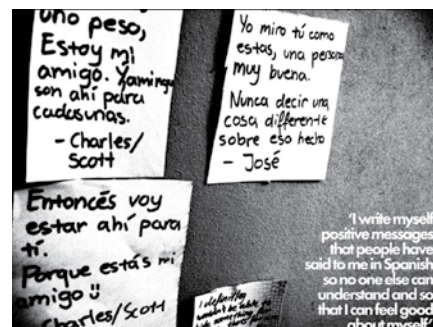 uno peso,
Estoy mi
amigo. Y amigo
son ahí para
cadasunas.
- Charles/
Scott
Yo miro tú como
estas, una persona
muy buena.
Nunca decir una
cosa differente
sobre eso hecho
- José
Entoncés voy
estar ahí para
tí.
Porque estás mi
amigo
Charles/Scott
I definitley
wouldn't be able to
'I write myself
positive messages
that people have
said to me in Spanish
so no one else can
understand and so
that I can feel good
about myself'